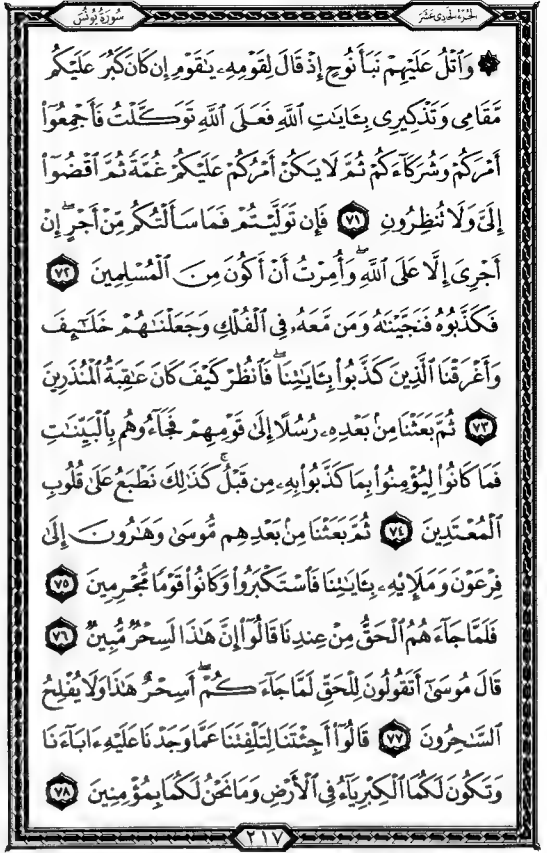 الجزء الحادي عشر
سورة يونس
۞ وَٱتْلُ عَلَيْهِمْ نَبَأَ نُوحٍ إِذْ قَالَ لِقَوْمِهِۦ يَـٰقَوْمِ إِن كَانَ كَبُرَ عَلَيْكُم
مَّقَامِى وَتَذْكِيرِى بِـَٔايَـٰتِ ٱللَّهِ فَعَلَى ٱللَّهِ تَوَكَّلْتُ فَأَجْمِعُوٓا۟
أَمْرَكُمْ وَشُرَكَآءَكُمْ ثُمَّ لَا يَكُنْ أَمْرُكُمْ عَلَيْكُمْ غُمَّةً ثُمَّ ٱقْضُوٓا۟
إِلَىَّ وَلَا تُنظِرُونِ ٧١ فَإِن تَوَلَّيْتُمْ فَمَا سَأَلْتُكُم مِّنْ أَجْرٍ ۖ إِنْ
أَجْرِىَ إِلَّا عَلَى ٱللَّهِ ۖ وَأُمِرْتُ أَنْ أَكُونَ مِنَ ٱلْمُسْلِمِينَ ٧٢
فَكَذَّبُوهُ فَنَجَّيْنَـٰهُ وَمَن مَّعَهُۥ فِى ٱلْفُلْكِ وَجَعَلْنَـٰهُمْ خَلَـٰٓئِفَ
وَأَغْرَقْنَا ٱلَّذِينَ كَذَّبُوا۟ بِـَٔايَـٰتِنَا ۖ فَٱنظُرْ كَيْفَ كَانَ عَـٰقِبَةُ ٱلْمُنذَرِينَ
٧٣ ثُمَّ بَعَثْنَا مِنۢ بَعْدِهِۦ رُسُلًا إِلَىٰ قَوْمِهِمْ فَجَآءُوهُم بِٱلْبَيِّنَـٰتِ
فَمَا كَانُوا۟ لِيُؤْمِنُوا۟ بِمَا كَذَّبُوا۟ بِهِۦ مِن قَبْلُ ۚ كَذَٰلِكَ نَطْبَعُ عَلَىٰ قُلُوبِ
ٱلْمُعْتَدِينَ ٧٤ ثُمَّ بَعَثْنَا مِنۢ بَعْدِهِم مُّوسَىٰ وَهَـٰرُونَ إِلَىٰ
فِرْعَوْنَ وَمَلَإِي۟هِۦ بِـَٔايَـٰتِنَا فَٱسْتَكْبَرُوا۟ وَكَانُوا۟ قَوْمًا مُّجْرِمِينَ ٧٥
فَلَمَّا جَآءَهُمُ ٱلْحَقُّ مِنْ عِندِنَا قَالُوٓا۟ إِنَّ هَـٰذَا لَسِحْرٌ مُّبِينٌ ٧٦
قَالَ مُوسَىٰٓ أَتَقُولُونَ لِلْحَقِّ لَمَّا جَآءَكُمْ ۖ أَسِحْرٌ هَـٰذَا وَلَا يُفْلِحُ
ٱلسَّـٰحِرُونَ ٧٧ قَالُوٓا۟ أَجِئْتَنَا لِتَلْفِتَنَا عَمَّا وَجَدْنَا عَلَيْهِ ءَابَآءَنَا
وَتَكُونَ لَكُمَا ٱلْكِبْرِيَآءُ فِى ٱلْأَرْضِ وَمَا نَحْنُ لَكُمَا بِمُؤْمِنِينَ ٧٨
٢١٧